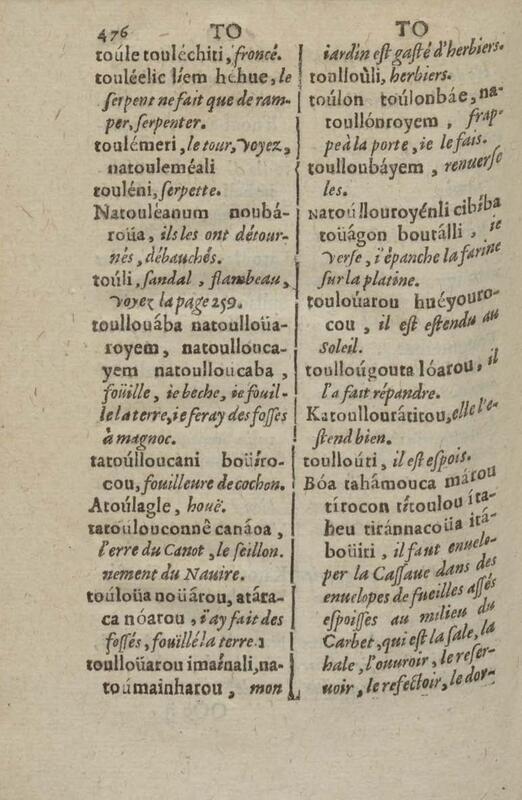 476 TO
toúle touléchiti, froncé.
touléelic líem héhue, le
ſerpent ne fait que de ram-
per, ſerpenter.
toulémeri, le tour, voyez,
natouleméali
touléni, ſerpette.
Natouléanum noubá-
roüa, ils les ont détour-
nés, débauchés.
toúli, ſandal, flambeau,
voyez la page 259.
toullouába natoulloüa-
royem, natoullouca-
yem natoulloucaba,
foüille, ie beche, ie foüil-
le la terre, ie feray des foſſes
à magnoc.
tatoúlloucani boüíro-
cou, foüilleure de cochon.
Atoúlagle, houë.
tatoúlouconnê canáoa,
l'erre du Canot, le ſeillon.
nement du Nauire.
toúloüa noüárou, atára-
ca nóarou, i'ay fait des
foſſés, foüillé la terre.
toulloüarou imaínali, na-
toúmainharou, mon
TO
iardin eſt gaſté d'herbiers.
toulloùli, herbiers.
toúlon toúlonbáe, na-
toullónroyem, frap-
pe à la porte, ie le fais.
toulloubáyem, renuerſe
les.
Natoúllouroyénli cibíba
toüágon boutálli, ie
verſe, i'épanche la farine
ſur la platine.
touloüarou huéyouro-
cou, il eſt eſtendu au
Soleil.
toulloúgouta lóarou, il
l'a fait répandre.
Katoulloutátitou, elle l'e-
ſtend bien.
toulloúti, il eſt eſpois.
Bóa tahámouca mátou
títocon títoulou íta-
heu tiránnacoüa itá-
boüiti, il faut enuelo-
per la Caſſaue dans des
enuelopes de fueilles aſſés
eſpoiſſes au milieu du
Carbet, qui eſt la ſale, la
hale, l'ouuroir, le reſer-
uoir, le refectoir, le dor-